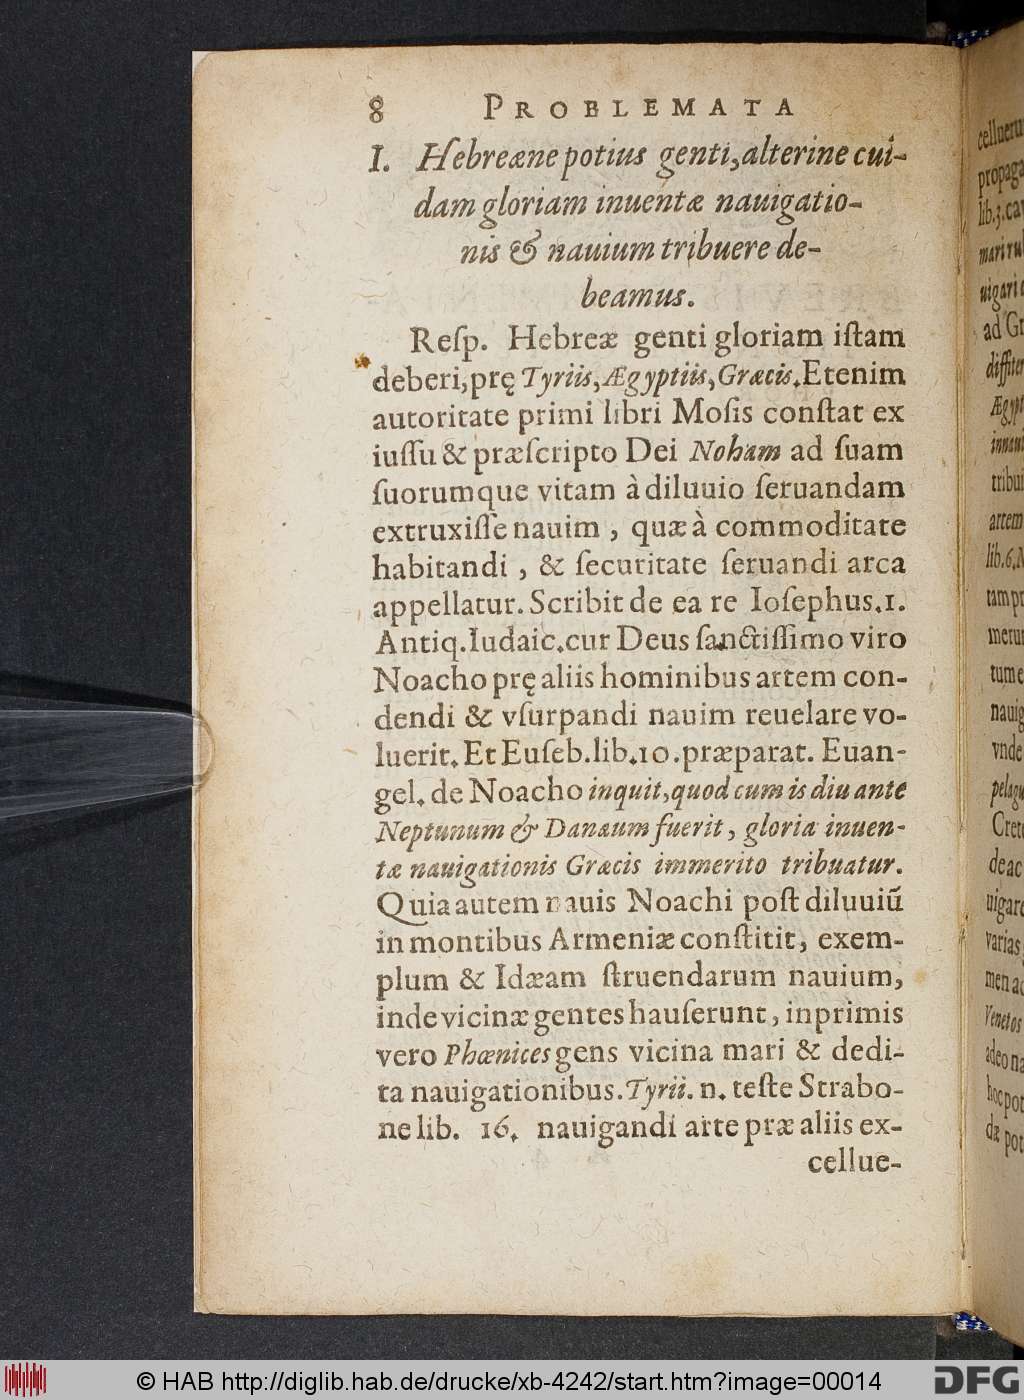 8 PROBLEMATA
I. Hebreæne potius genti, alterine cui-
dam gloriam inuentæ nauigatio-
nis & nauium tribuere de-
beamus.
Reſp. Hebreæ genti gloriam iſtam
deberi, prę Tyriis, Ægyptiis, Græcis. Etenim
autoritate primi libri Moſis conſtat ex
iuſſu & præſcripto Dei Noham ad ſuam
ſuorumque vitam à diluuio ſeruandam
extruxiſſe nauim, quæ à commoditate
habitandi, & ſecuritate ſeruandi arca
appellatur. Scribit de ea re Ioſephus. 1.
Antiq. Iudaic. cur Deus ſanctiſſimo viro
Noacho prę aliis hominibus artem con-
dendi & vſurpandi nauim reuelare vo-
luerit. Et Euſeb. lib. 10. præparat. Euan-
gel. de Noacho inquit, quod cum is diu ante
Neptunum & Danaum fuerit, gloria inuen-
tæ nauigationis Græcis immerito tribuatur.
Quia autem nauis Noachi poſt diluuiũ
in montibus Armeniæ conſtitit, exem-
plum & Idæam ſtruendarum nauium,
inde vicinæ gentes hauſerunt, inprimis
vero Phœnices gens vicina mari & dedi-
ta nauigationibus. Tyrii. n. teſte Strabo-
ne lib. 16. nauigandi arte præ aliis ex-
cellue-
cellueru
propaga
lib. 3. ca
mari ru
uigari
ad Gr
diffiter
Ægypt
tribui
artem
lib. 6. N
tam pr
merur
tum e
nauig
vnde
pelagu
Crete
de ac
uigare
varias
men ac
Venetos
adeo na
hoc pot
dæ pot
© HAB http://diglib.hab.de/drucke/xb-4242/start.htm?image=00014
DFG